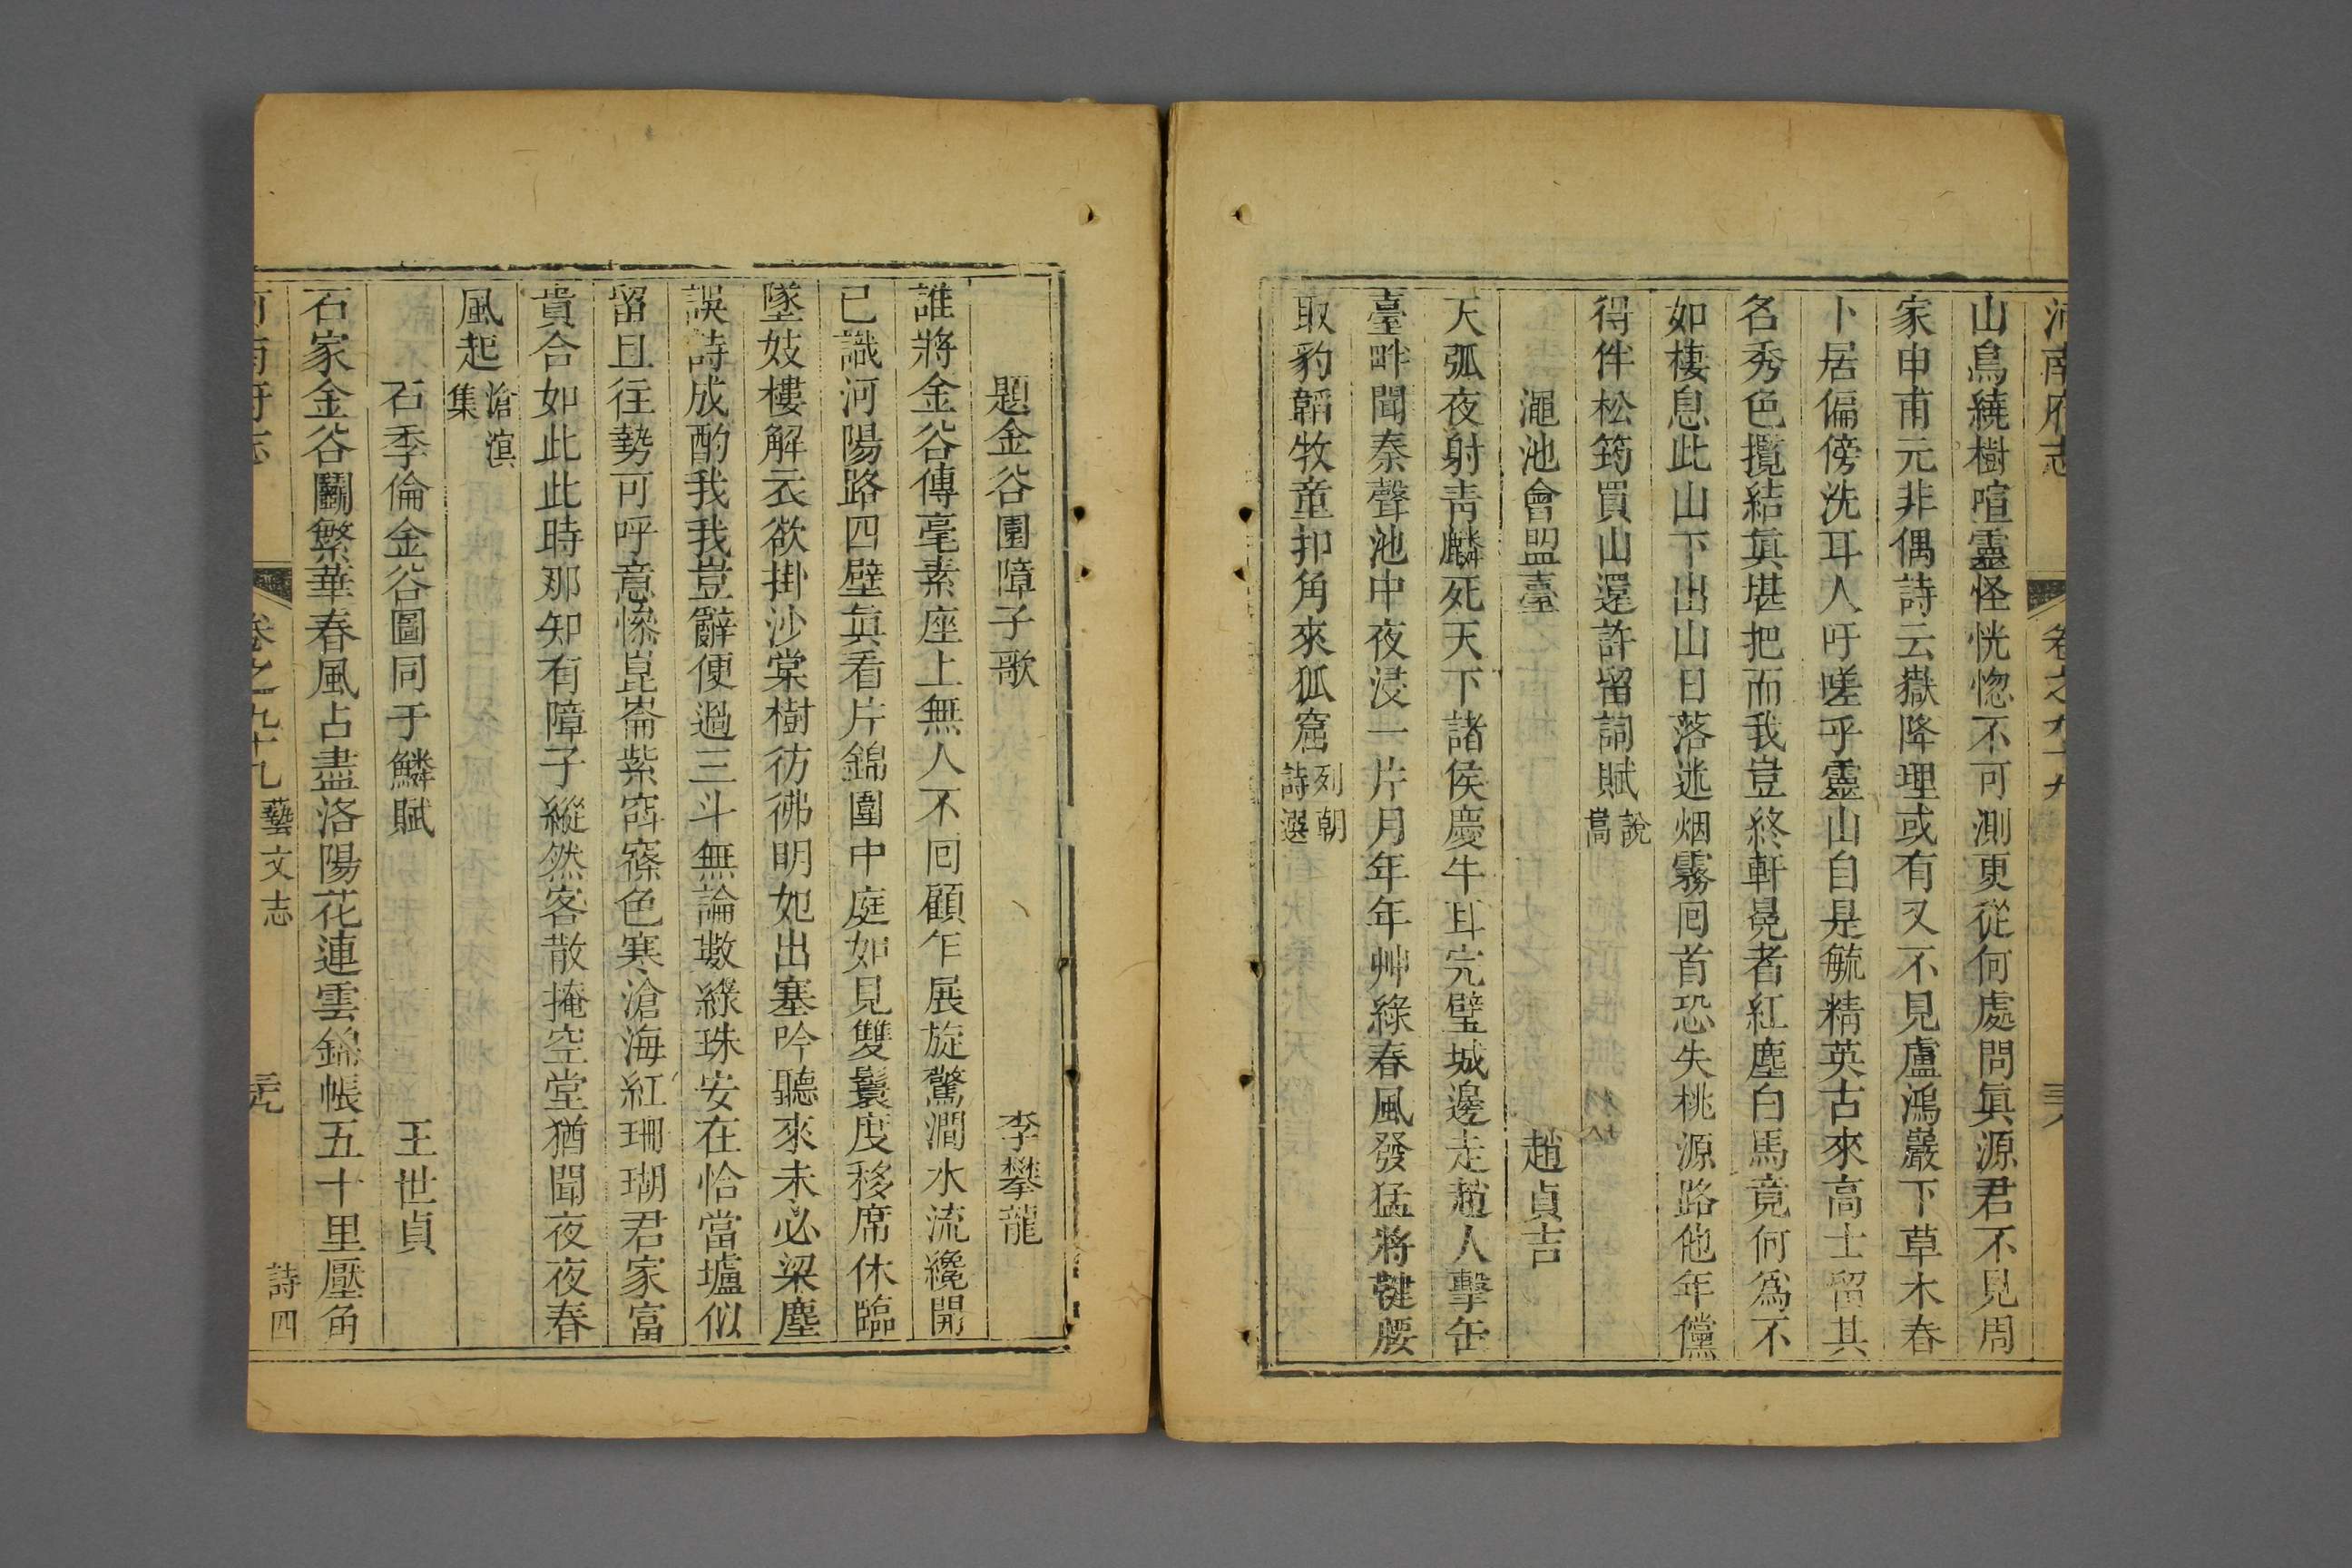 河南府志 卷之九十九 三十八
山鳥繞樹喧靈怪恍惚不可測更從何處問眞源君不見周
家申甫元非偶詩云嶽降理或有又不見盧鴻巖下草木春
卜居偏傍洗耳人吁嗟乎靈山自是毓精英古來高士留其
名秀色攬結眞堪把而我豈終軒冕者紅塵白馬竟何爲不
如棲息此山下出山日落迷烟霧囘首恐失桃源路他年儻
得伴松筠買山還許留詞賦 說嵩
澠池會盟臺 趙貞吉
天弧夜射青麟死天下諸侯慶牛耳完璧城邊走趙人擊缶
臺畔聞秦聲池中夜浸一片月年年艸綠春風發猛將鞬腰
取豹韜牧童扣角來狐窟 列朝詩選
題金谷園障子歌 李攀龍
誰將金谷傳毫素座上無人不囘顧乍展旋驚澗水流纔開
已識河陽路四壁眞看片錦圍中庭如見雙鬟度移席休臨
墜妓樓解衣欲掛沙棠樹彷彿明妃出塞吟聽來未必梁塵
誤詩成酌我我豈辭便過三斗無論數綠珠安在恰當壚似
留且往勢可呼意慘崑崙紫窅窱色寒滄海紅珊瑚君家富
貴合如此此時那知有障子縱然客散掩空堂猶聞夜夜春
風起 滄溟集
石季倫金谷圖同于鱗賦 王世貞
石家金谷鬭繁華春風占盡洛陽花連雲錦帳五十里壓角
河南府志 卷之九十九 藝文志 三十九 詩四